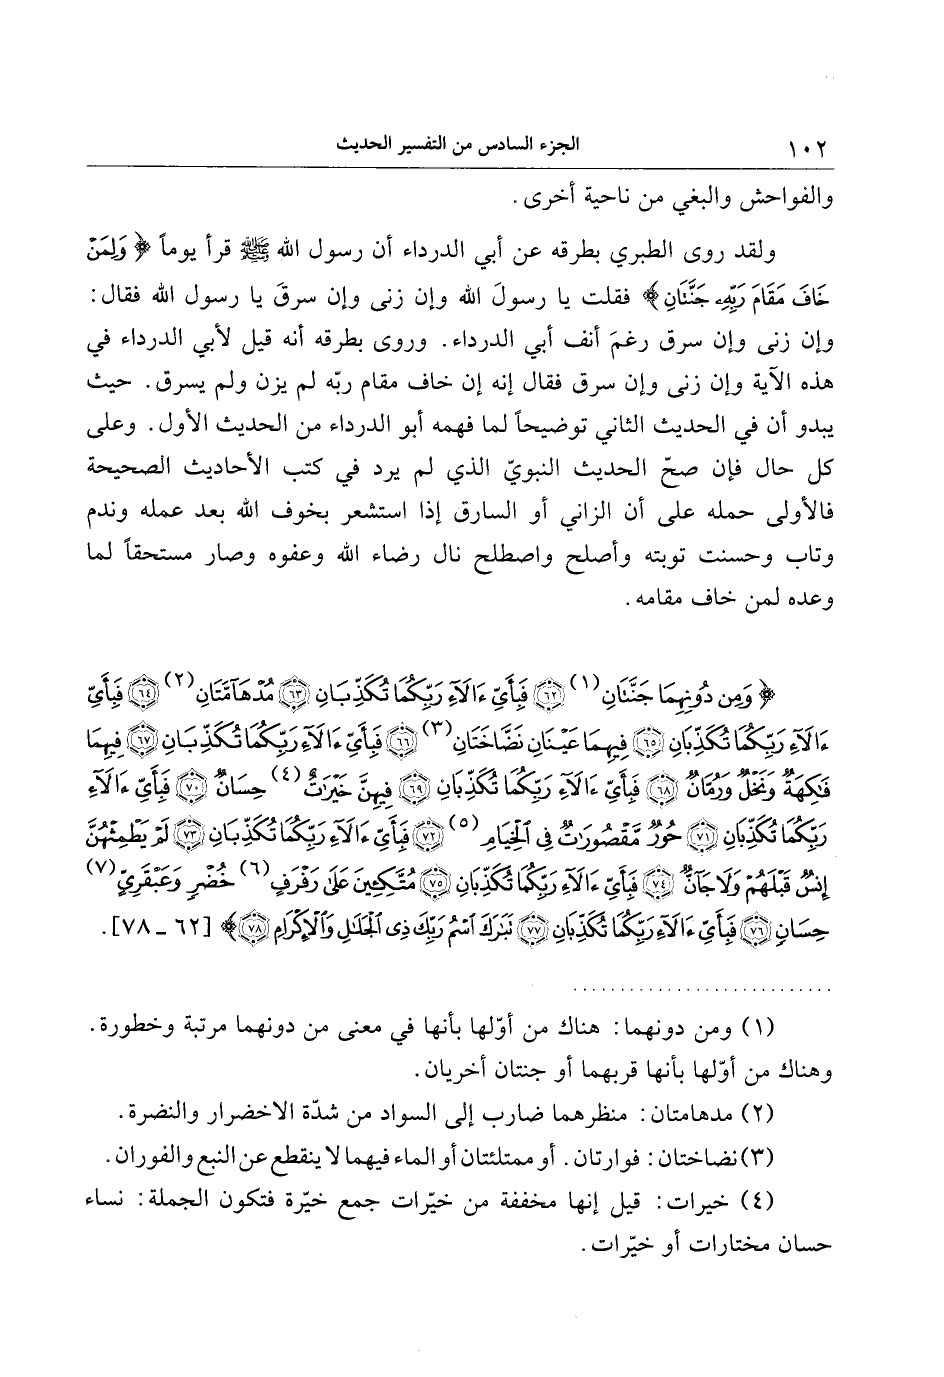 ١٠٢ الجزء السادس من التفسير الحديث
والفواحش والبغي من ناحية أخرى .
ولقد روى الطبري بطرقه عن أبي الدرداء أن رسول الله ﷺ قرأ يوماً ﴿ وَلِمَنْ
خَافَ مَقَامَ رَبِّهِۦ جَنَّتَانِ ﴾ فقلت يا رسولَ الله وإن زنى وإن سرقَ يا رسول الله فقال :
وإن زنى وإن سرق رغمَ أنف أبي الدرداء . وروى بطرقه أنه قيل لأبي الدرداء في
هذه الآية وإن زنى وإن سرق فقال إنه إن خاف مقام ربّه لم يزن ولم يسرق . حيث
يبدو أن في الحديث الثاني توضيحاً لما فهمه أبو الدرداء من الحديث الأول . وعلى
كل حال فإن صحّ الحديث النبويّ الذي لم يرد في كتب الأحاديث الصحيحة
فالأولى حمله على أن الزاني أو السارق إذا استشعر بخوف الله بعد عمله وندم
وتاب وحسنت توبته وأصلح واصطلح نال رضاء الله وعفوه وصار مستحقاً لما
وعده لمن خاف مقامه .
﴿ وَمِن دُونِهِمَا جَنَّتَانِ (١) ٦٢ فَبِأَيِّ ءَالَآءِ رَبِّكُمَا تُكَذِّبَانِ ٦٣ مُدْهَآمَّتَانِ (٢) ٦٤ فَبِأَيِّ
ءَالَآءِ رَبِّكُمَا تُكَذِّبَانِ ٦٥ فِيهِمَا عَيْنَانِ نَضَّاخَتَانِ (٣) ٦٦ فَبِأَيِّ ءَالَآءِ رَبِّكُمَا تُكَذِّبَانِ ٦٧ فِيهِمَا
فَٰكِهَةٌ وَنَخْلٌ وَرُمَّانٌ ٦٨ فَبِأَيِّ ءَالَآءِ رَبِّكُمَا تُكَذِّبَانِ ٦٩ فِيهِنَّ خَيْرَٰتٌ (٤) حِسَانٌ ٧٠ فَبِأَيِّ ءَالَآءِ
رَبِّكُمَا تُكَذِّبَانِ ٧١ حُورٌ مَّقْصُورَٰتٌ فِى الْخِيَامِ (٥) ٧٢ فَبِأَيِّ ءَالَآءِ رَبِّكُمَا تُكَذِّبَانِ ٧٣ لَمْ يَطْمِثْهُنَّ
إِنسٌ قَبْلَهُمْ وَلَا جَآنٌّ ٧٤ فَبِأَيِّ ءَالَآءِ رَبِّكُمَا تُكَذِّبَانِ ٧٥ مُتَّكِـِٔينَ عَلَىٰ رَفْرَفٍ (٦) خُضْرٍ وَعَبْقَرِيٍّ (٧)
حِسَانٍ ٧٦ فَبِأَيِّ ءَالَآءِ رَبِّكُمَا تُكَذِّبَانِ ٧٧ تَبَٰرَكَ اسْمُ رَبِّكَ ذِى الْجَلَٰلِ وَالْإِكْرَامِ ٧٨ ﴾ [٦٢ ـ ٧٨] .
(١) ومن دونهما : هناك من أوّلها بأنها في معنى من دونهما مرتبة وخطورة .
وهناك من أوّلها بأنها قربهما أو جنتان أخريان .
(٢) مدهامتان : منظرهما ضارب إلى السواد من شدّة الاخضرار والنضرة .
(٣) نضاختان : فوارتان . أو ممتلئتان أو الماء فيهما لا ينقطع عن النبع والفوران .
(٤) خيرات : قيل إنها مخففة من خيّرات جمع خيّرة فتكون الجملة : نساء
حسان مختارات أو خيّرات .